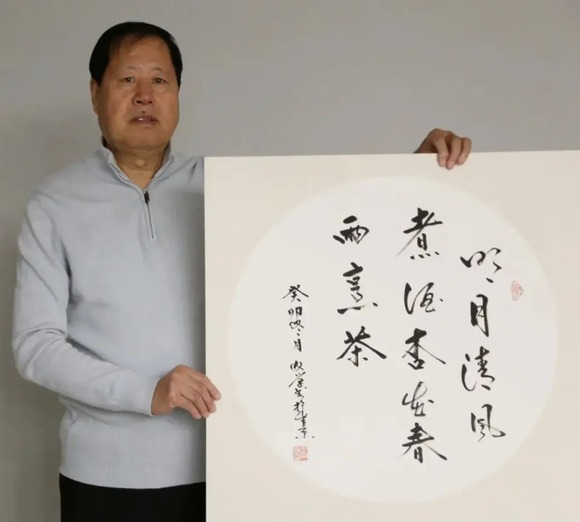 明月清风
煮酒杏花春
雨烹茶
癸卯冬月 书於